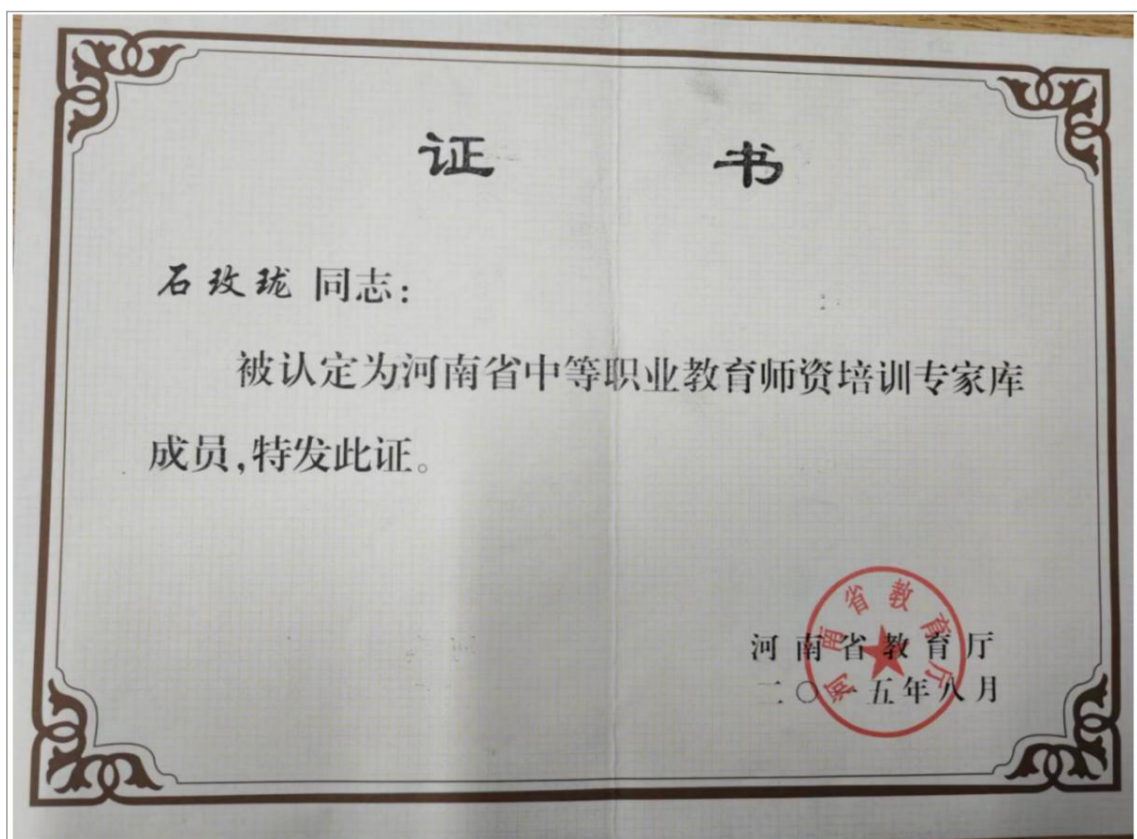 证 书
石玫珑 同志:
被认定为河南省中等职业教育师资培训专家库
成员,特发此证。
河南省教育厅
河南省教育厅
二〇一五年八月